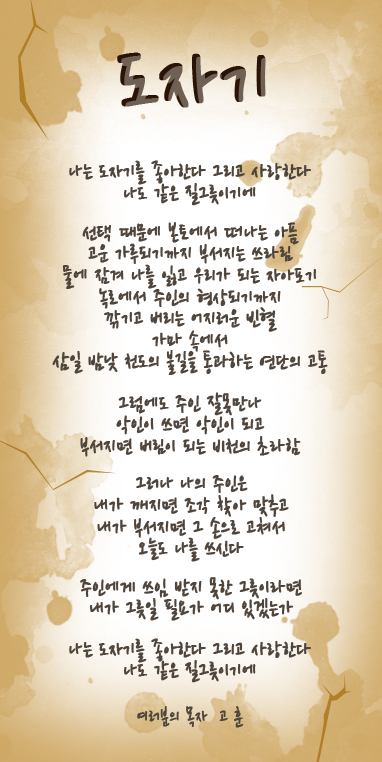 도자기
나는 도자기를 좋아한다 그리고 사랑한다
나도 같은 질그릇이기에
선택 때문에 본토에서 떠나는 아픔
고운 가루되기까지 부서지는 쓰라림
물에 잠겨 나를 잃고 우리가 되는 자아포기
녹로에서 주인의 형상되기까지
깎기고 버리는 어지러운 빈혈
가마 속에서
삼일 밤낮 천도의 불길을 통과하는 연단의 고통
그럼에도 주인 잘못만나
악인이 쓰면 악인이 되고
부서지면 버림이 되는 비천의 초라함
그러나 나의 주인은
내가 깨지면 조각 찾아 맞추고
내가 부서지면 그 손으로 고쳐서
오늘도 나를 쓰신다
주인에게 쓰임 받지 못한 그릇이라면
내가 그릇일 필요가 어디 있겠는가
나는 도자기를 좋아한다 그리고 사랑한다
나도 같은 질그릇이기에
여러분의 목자 고 훈